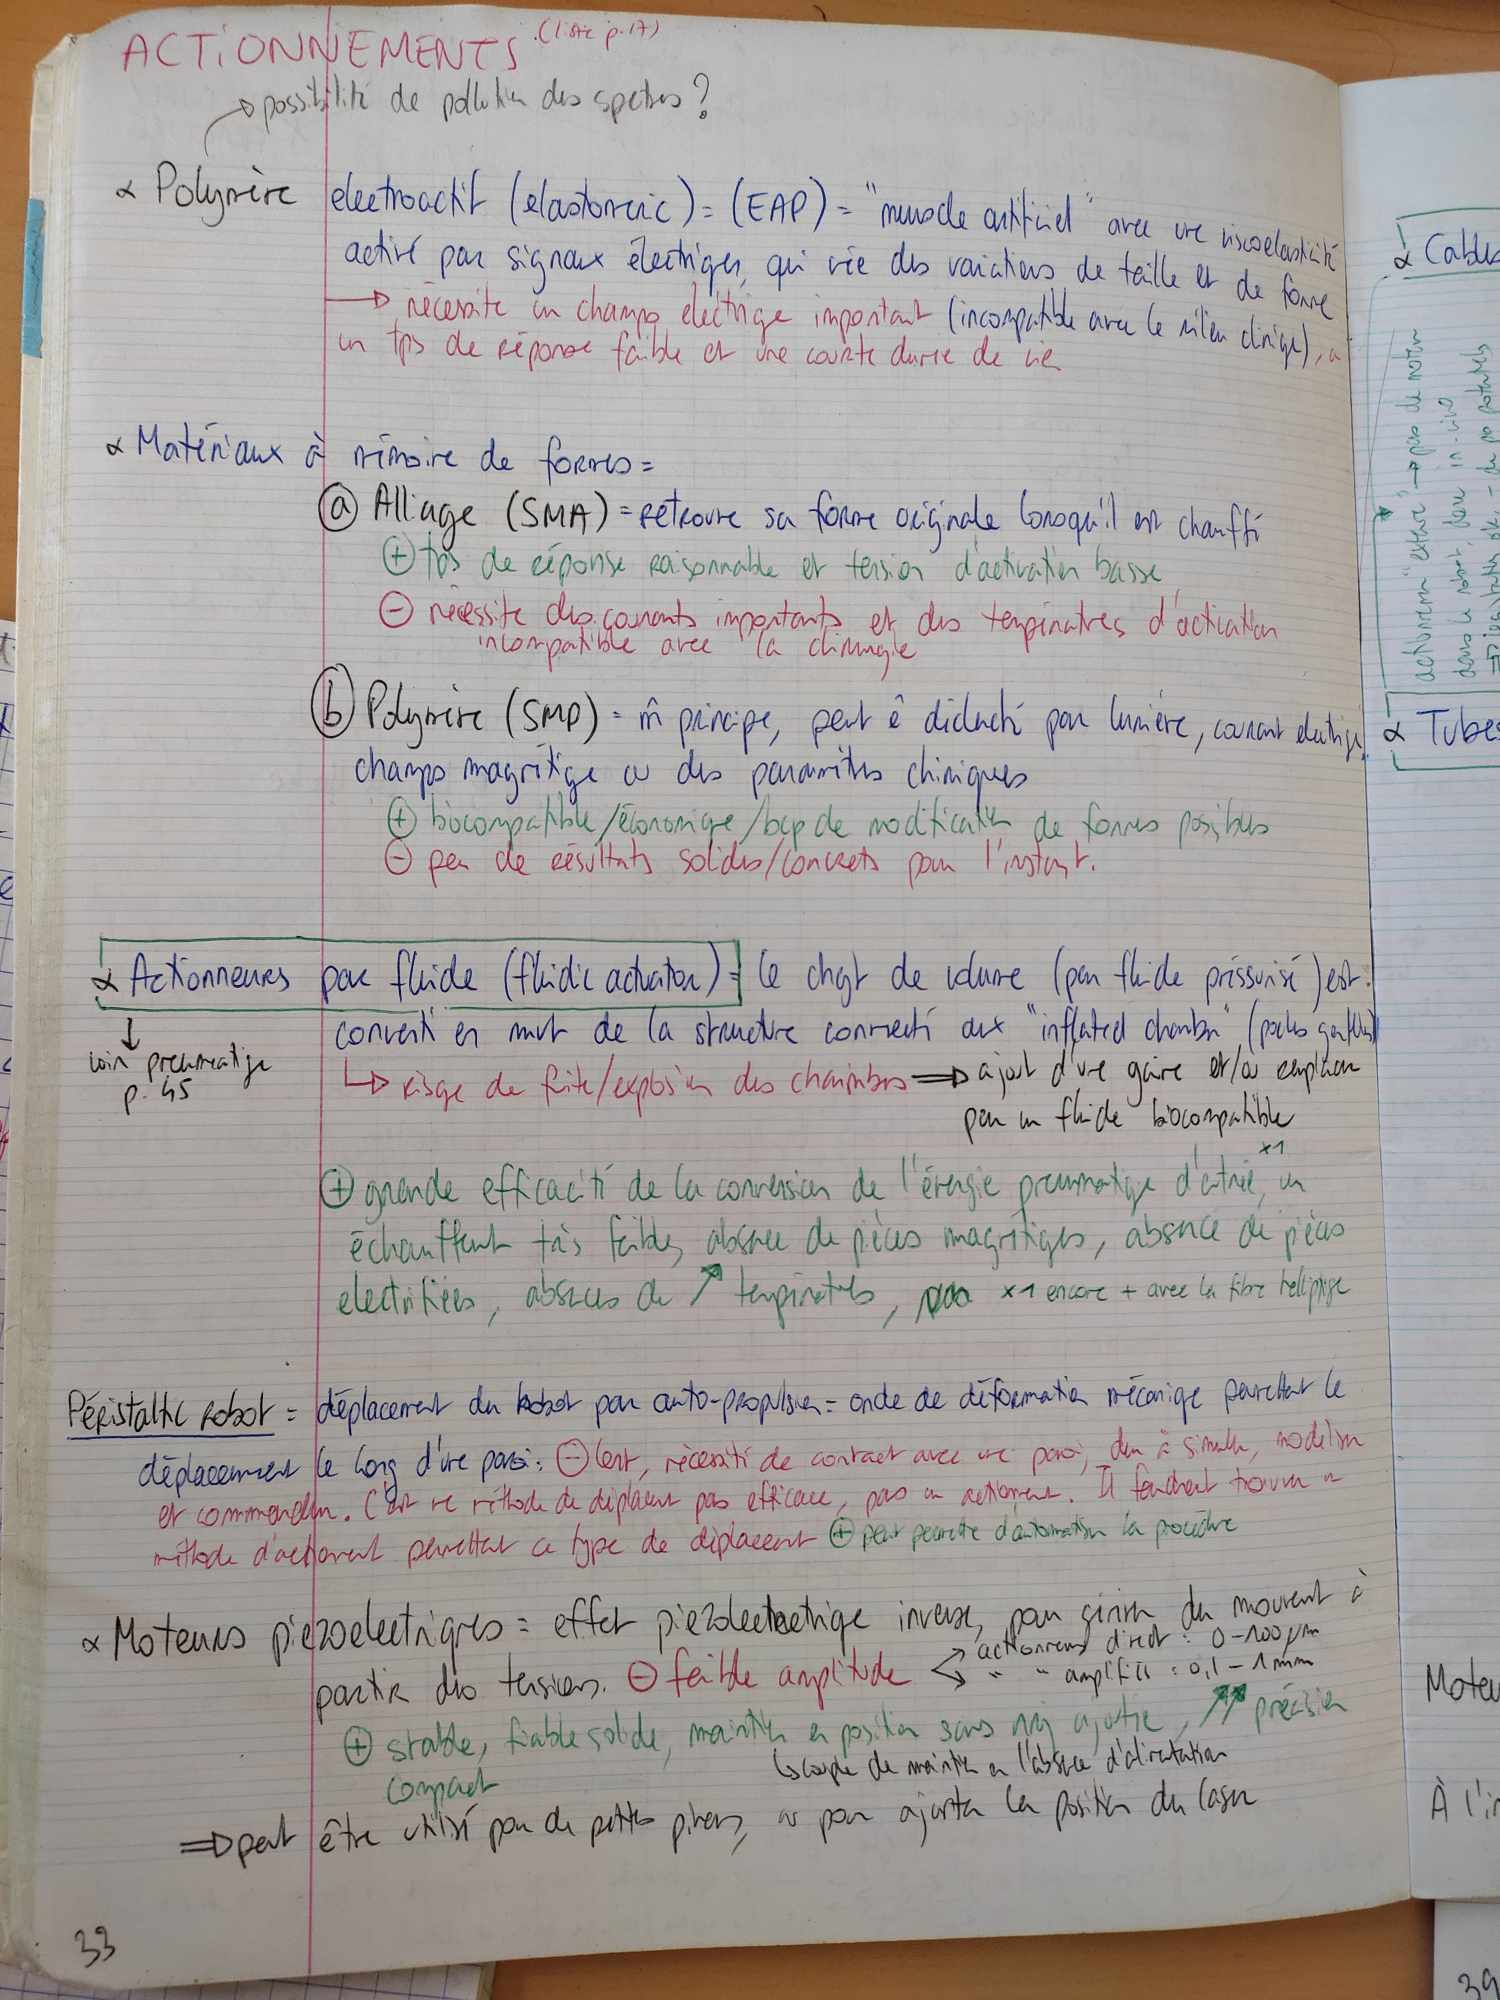 ACTIONNEMENTS (liste p.17)
→ possibilité de pollution des spectres ?
∝ Polymère électroactif (elastomeric) = (EAP) = "muscle artificiel" avec une viscoelasticité
activé par signaux électriques, qui crée des variations de taille et de forme
→ nécessite un champs electrique important (incompatible avec le milieu clinique),
un tps de réponse faible et une courte durée de vie
∝ Matériaux à mémoire de formes =
ⓐ Alliage (SMA) = retrouve sa forme originale lorsqu'il est chauffé
⊕ tps de réponse raisonnable et tension d'activation basse
⊖ nécessite des courants importants et des températures d'activation
incompatible avec la chirurgie
ⓑ Polymère (SMP) = m̂ principe, peut ê déclenché par lumière, courant électrique,
champs magnétique ou des paramètres chimiques
⊕ biocompatible/économique/bcp de modification de formes possibles
⊖ peu de résultats solides/concrets pour l'instant.
∝ Actionneurs par fluide (fluidic actuator) = le chgt de volume (par fluide préssurisé) est
converti en mvt de la structure connecté aux "inflated chamber" (poches gonflées)
↓
voir pneumatique
p.45
↳ risque de fuite/explosion des chambres ⇒ ajout d'une gaine et/ou explosion
par un fluide biocompatible
⊕ grande efficacité de la conversion de l'énergie pneumatique d'entrée ×1, un
échauffement très faible, absence de pièces magnétiques, absence de pièces
electrifiées, absence de ↗ températures, ×1 encore + avec la fibre
Péristaltic robot = déplacement du robot par auto-propulsion = onde de déformation mécanique permettant le
déplacement le long d'une paroi : ⊖ lent, nécessité de contact avec une paroi, dur à simuler, modéliser
et commander. C'est une méthode de déplacement pas efficace, pas un actionnement. Il faudrait trouver une
méthode d'actionnement permettant ce type de déplacement ⊕ peut permettre d'automatiser la procédure
∝ Moteurs piezoelectriques = effet piézoelectrique inverse, pour générer du mouvement à
partir des tensions. ⊖ faible amplitude < actionneurs direct : 0-100 µm
" " amplifiés : 0,1-1mm
⊕ stable, fiable solide, maintien en position sans nrj ajoutée, ↗↗ précision
compact
↳ couple de maintien en l'absence d'alimentation
⇒ peut être utilisé pour de petites pinces, ou pour ajuster la position du laser
33
∝ Cables
actionneur "externe" → pas de moteur
dans le robot, donc in-vivo
∝ Tubes
Moteu
À l'in
39